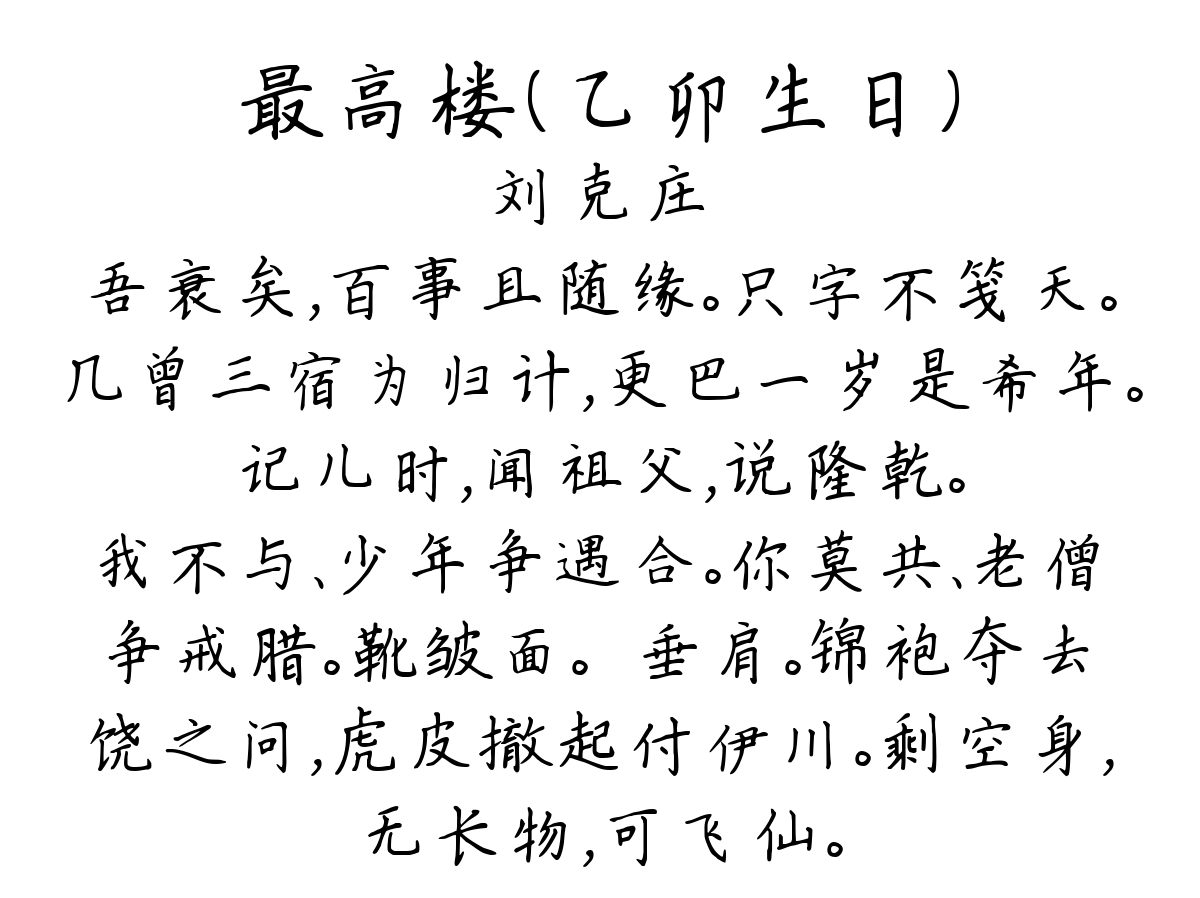 最高楼(乙卯生日)
刘克庄
吾衰矣,百事且随缘。只字不笺天。
几曾三宿为归计,更巴一岁是希年。
记儿时,闻祖父,说隆乾。
我不与、少年争遇合。你莫共、老僧
争戒腊。靴皱面。 垂肩。锦袍夺去
饶之问,虎皮撤起付伊川。剩空身,
无长物,可飞仙。